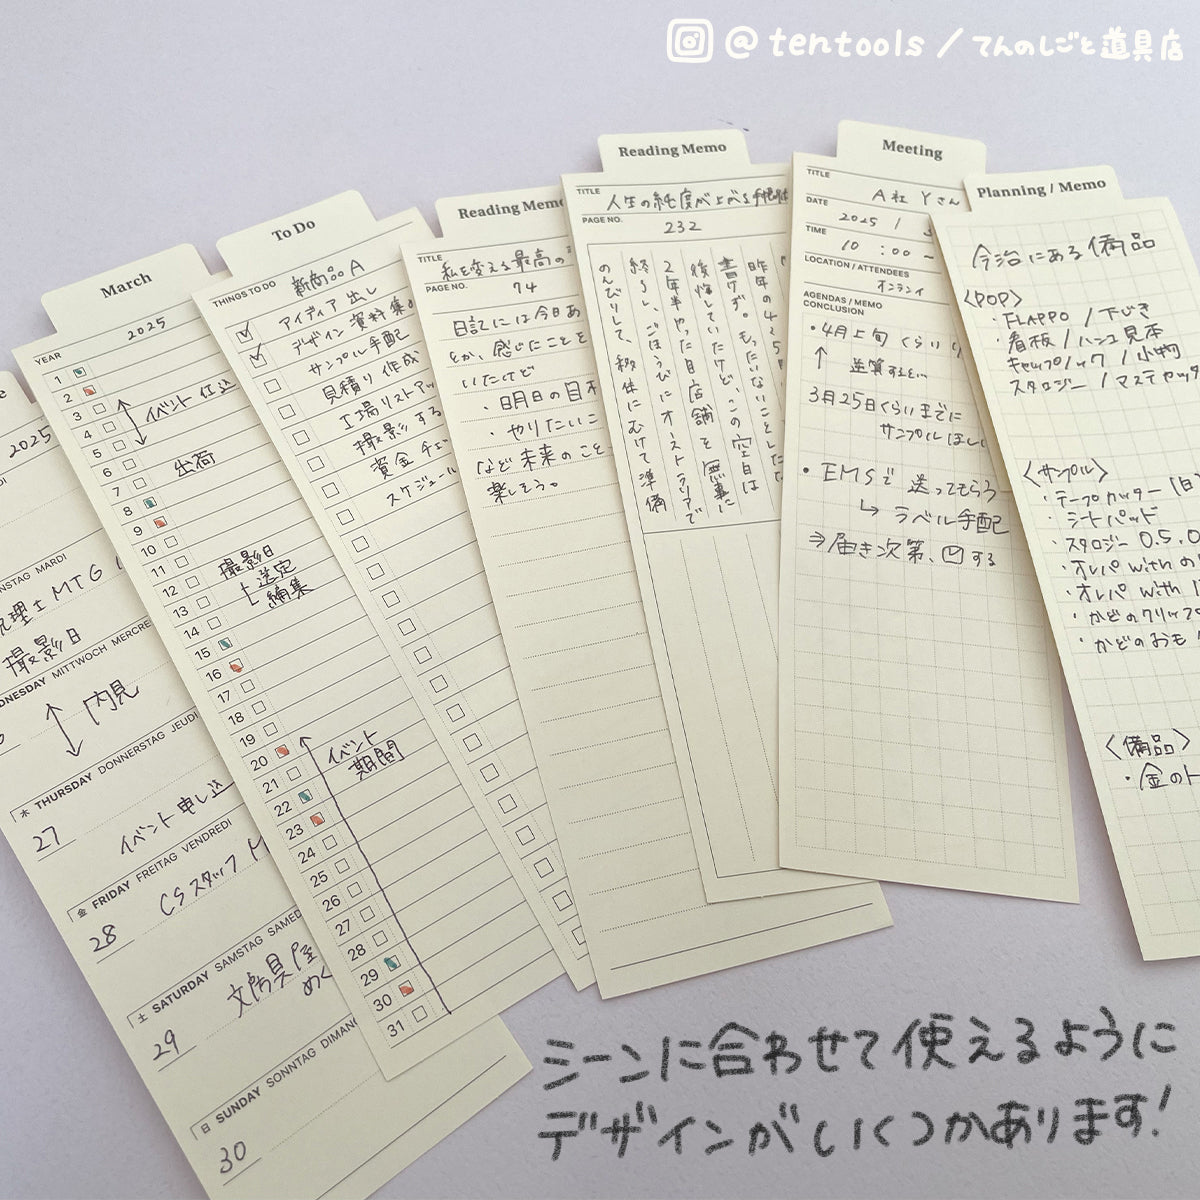 @tentools / てんのしごと道具店
2025
NSTAG MARDI
理士 MTG
撮影日
DNESDAY MITTWOCH MERCRE
内見
木 THURSDAY DONNERSTAG JEUDI
27
イベント申し込
金 FRIDAY FREITAG VENDREDI
28
CSスタッフ M
土 SATURDAY SAMSTAG SAMED
29
文房具屋
めぐ
日 SUNDAY SONNTAG DIMANC
30
March
YEAR 2025
1
2
3
イベント 仕込
4
5
6
7
出荷
8
9
10
11
12
撮影日
13
→選定
14
→編集
15
16
17
18
19
20
イベント
21
期間
22
23
24
25
26
27
28
29
30
31
To Do
THINGS TO DO 新商品A
アイディア出し
デザイン資料集め
サンプル手配
見積り作成
工場リストアッ
撮影する
資金チェ
スケジュール
Reading Memo
TITLE 私を変える最高の
PAGE NO. 74
日記には今日あ
とか、感じたことを
いたけど
・明日の目標
・やりたいこ
など未来のこと
楽しそう。
Reading Memo
TITLE 人生の純度が上がる手帳術
PAGE NO. 232
昨年の4〜5月
書けず。もったいないことした
後悔していたけど、この空白は
2年半やった目店舗を無事に
終らし、ごほうびにオーストラリアで
のんびりして、移住にむけて準備
Meeting
TITLE A社 Yさん
DATE 2025 / 3
TIME 10 :00 ~
LOCATION / ATTENDEES オンライン
AGENDAS / MEMO
CONCLUSION
・4月上旬くらい
↑ 逆算すると…
3月25日くらいまでに
サンプルほしい
・EMSで送ってもらう
↳ ラベル手配
⇒届き次第、
する
Planning / Memo
今治にある備品
〈POP〉
・FLAPPO / 下じき
・看板 / ハンコ見本
キャップノック / 小物
スタロジー / マステカッタ
〈サンプル〉
・テープカッター(白
・シートパッド
・スタロジー 0.5.0
・オレパ with の
・オレパ with
・かどのクリップ
・かどのおも
〈備品〉
・金のト
シーンに合わせて使えるように
デザインがいくつかあります!